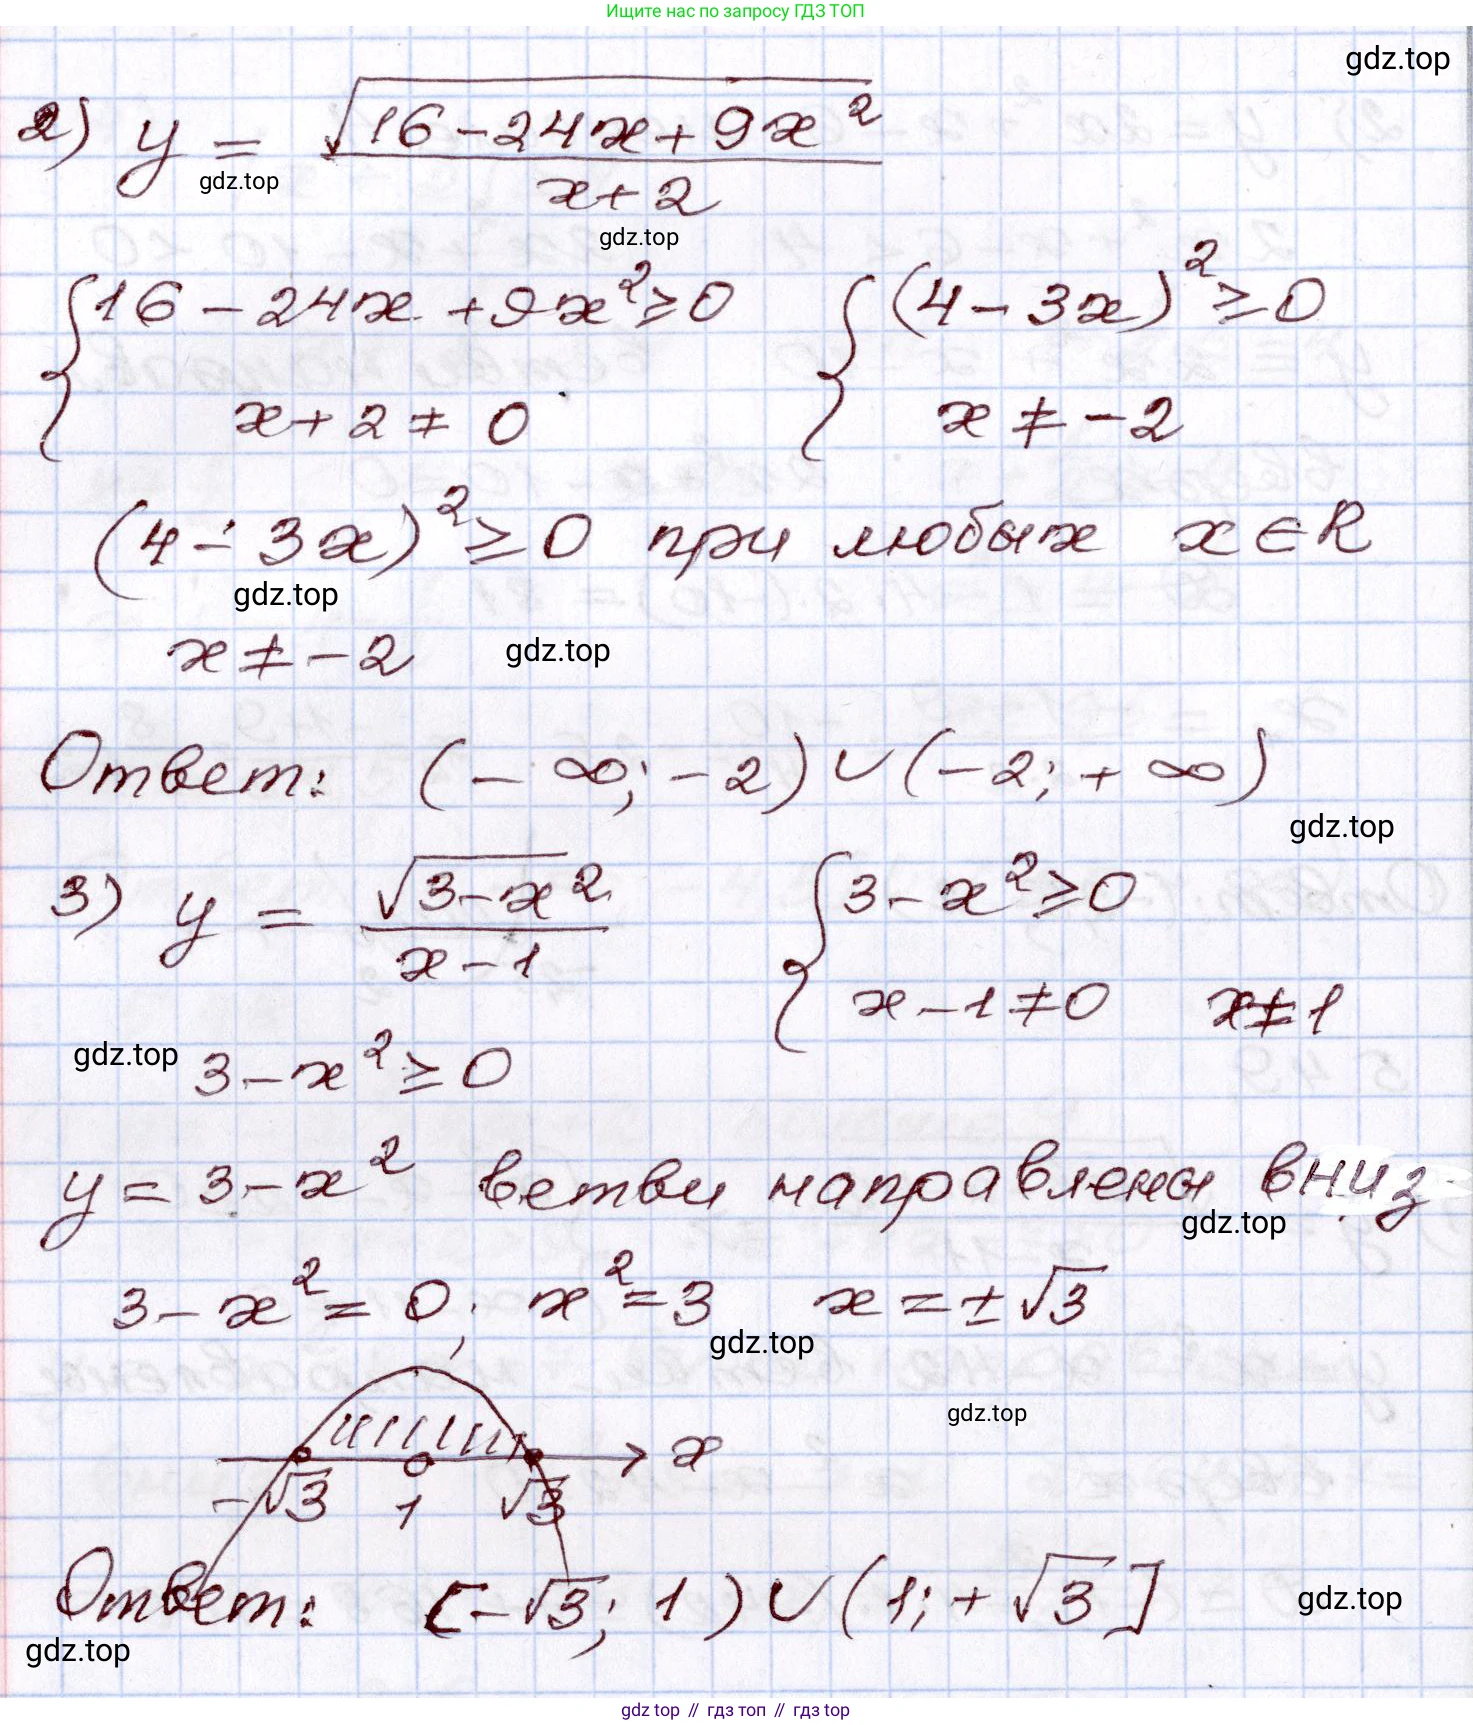 Ищите нас по запросу ГДЗ ТОП
gdz.top
2) y = √(16-24x+9x²) / (x+2)
gdz.top
gdz.top
{ 16-24x+9x²≥0 { (4-3x)²≥0
x+2≠0 x≠-2
(4-3x)²≥0 при любых x∈R
gdz.top
x≠-2 gdz.top
Ответ: (-∞;-2)∪(-2;+∞)
gdz.top
3) y = √(3-x²) / (x-1) { 3-x²≥0
x-1≠0 x≠1
gdz.top 3-x²≥0
y=3-x² ветви направлены вниз
gdz.top
3-x²=0; x²=3 x=±√3
gdz.top
gdz.top
x
-√3 1 √3
Ответ: [-√3; 1)∪(1;+√3]
gdz.top
gdz.top
gdz top // гдз топ // гдз top